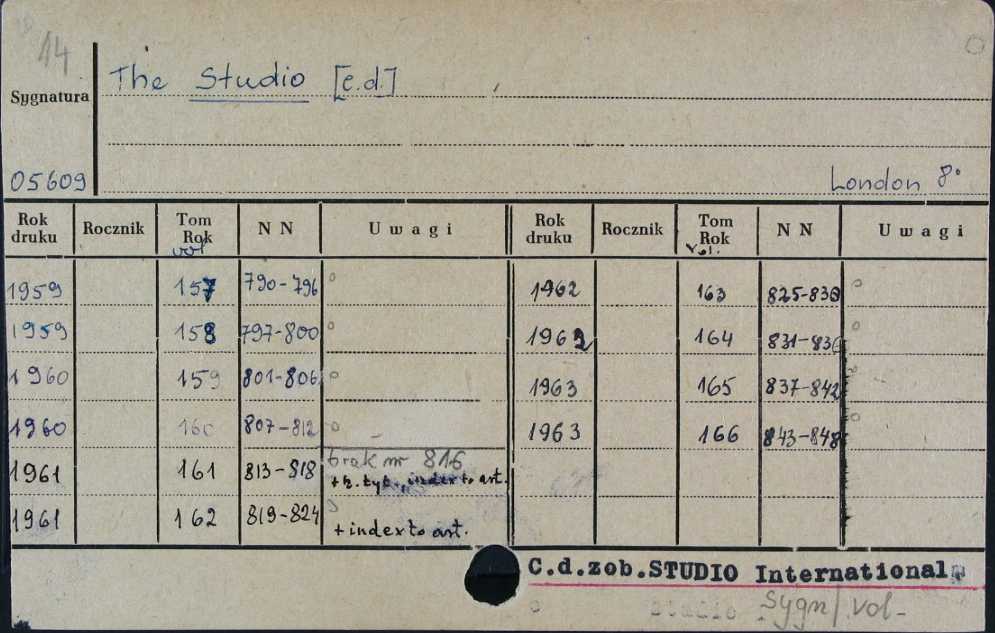 14
Sygnatura The Studio [c.d.]
05609 London 8°
Rok druku Rocznik Tom Rok vol NN Uwagi Rok druku Rocznik Tom Rok Vol. NN Uwagi
1959 157 790-796 1962 163 825-830
1959 158 797-800 1962 164 831-836
1960 159 801-806 1963 165 837-842
1960 160 807-812 1963 166 843-848
1961 161 813-818 brak nr 816
+ k. tyt., index to art.
1961 162 819-824 + index to art.
C.d.zob.STUDIO International
Sygn/vol-